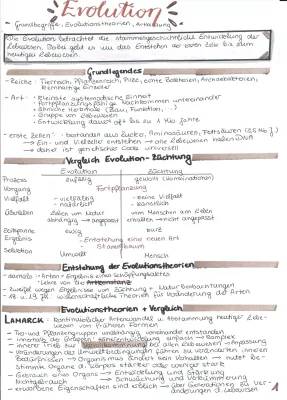 Evolution
Grundbegriffe, Evolutionstheorien, Artbildung
Die Evolution betrachtet die stammesgeschichtliche Entwicklung der
Lebewesen. Dabei geht es um das Entstehen der ersten Zelle bis zum
heutigen Lebewesen.
Grundlegendes
- Reiche: Tierreich, Pflanzenreich, Pilze, echte Bakterien, Archaebakterien,
Kernhaltige Einzeller
- Art: - Kleinste systematische Einheit
- Fortpflanzungsfähige Nachkommen untereinander
- ähnliche Merkmale (Bau, Funktion, ...)
- Gruppe von Lebewesen
- Entwicklung dauert oft bis zu 1 Mio Jahre
- erste Zellen: - bestanden aus Zucker, Aminosäuren, Fettsäuren
→ Ein- und Vielzeller entstehen → alle Lebewesen haben DNA
→ daher ist genetischer Code universell
Vergleich Evolution - Züchtung
Evolution Züchtung
Prozess zufällig gewollt (Kombinationen)
Vorgang Fortpflanzung
Vielfalt - vielfältig - keine Vielfalt
- natürlich - künstlich
Überleben Zellen an Natur vom Menschen am Leben
abhängig → angepasst erhalten → nicht angepasst
Zeitspanne ewig kurz
Ergebnis - Entstehung einer neuen Art
- Stammbaum
Selektion Umwelt Mensch
Entstehung der Evolutionstheorien
- damals → Arten = Ergebnis eines Schöpfungsaktes
- Lehre von der Artkonstanz
- Zweifel wegen Ergebnissen von Züchtung + Naturbeobachtungen
- 18. u. 19. Jh.: wissenschaftliche Theorien für Veränderung der Arten
Evolutionstheorien + Vergleich
LAMARCK - Kontinuierlicher Artenwandel u. Abstammung heutiger Lebe-
wesen von früheren Formen
- Tier- und Pflanzengruppen unabhängig voneinander entstanden
- innerhalb der Gruppen: Höherentwicklung einfach → komplex
- innerer Trieb zur Vervollkommnung bei allen Lebewesen → Anpassung
- Veränderungen der Umweltbedingungen führen zu veränderten inneren
Bedürfnissen → Organismus ändert sein Verhalten → nutzt be-
stimmte Organe d. Körpers stärker oder weniger stark
- Gebrauch eines Organs → Entwicklung und Stärkung
- Nichtgebrauch → Schwächung und Verkümmerung
- erworbene Eigenschaften sind erblich → über Generationen zu Ver-
änderungen d. Lebewesen
1